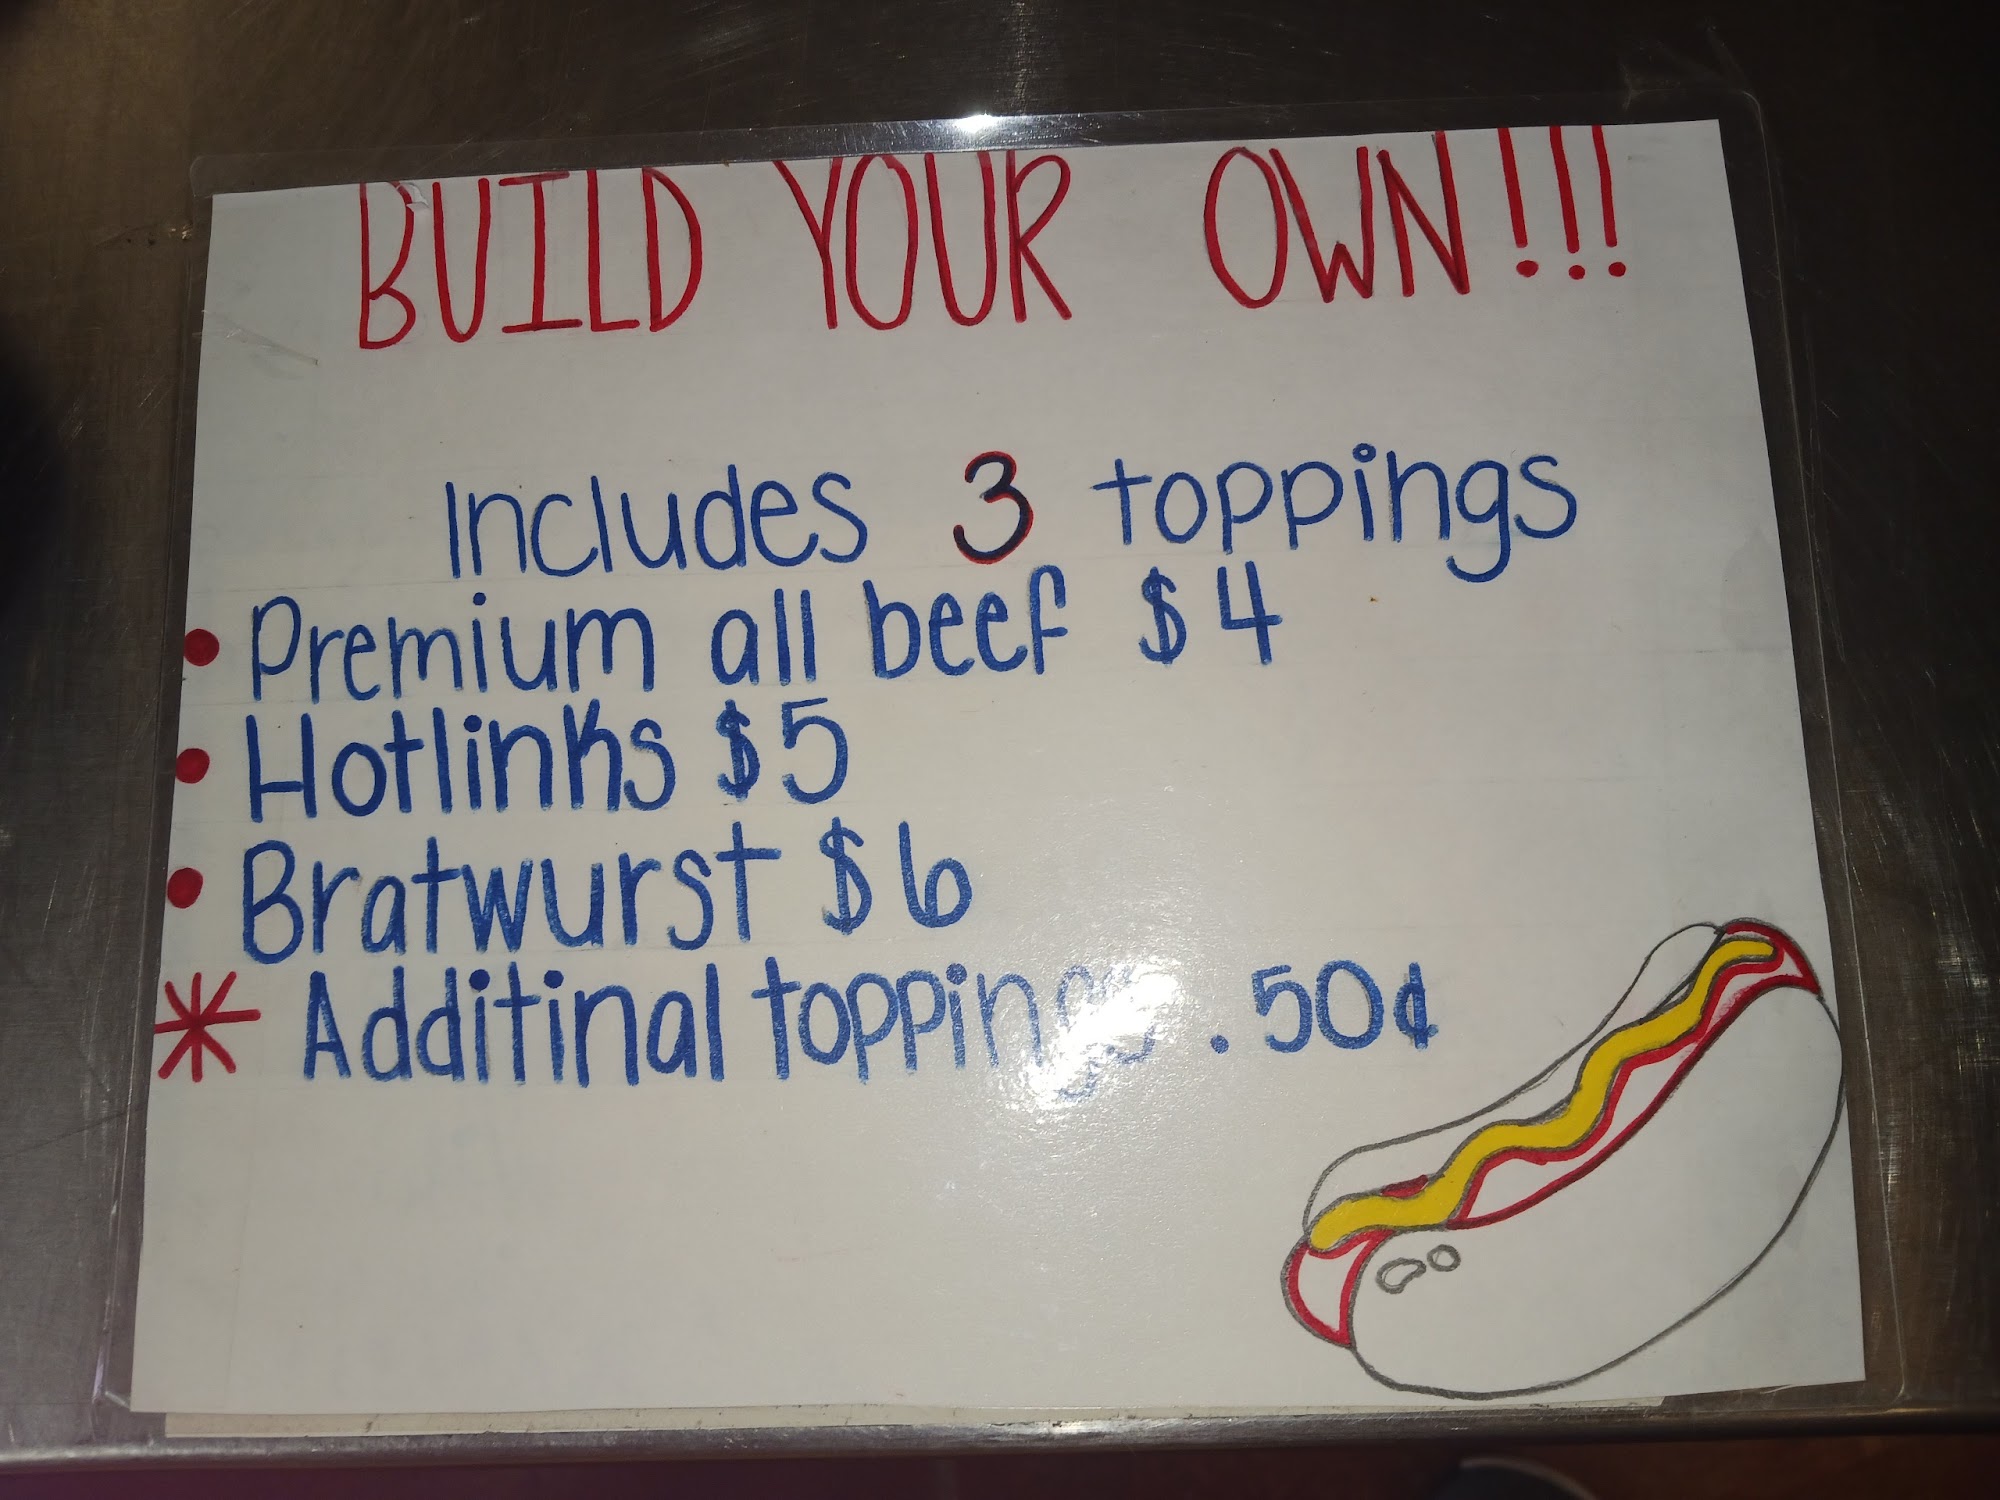 BUILD YOUR OWN!!!
Includes 3 toppings
• Premium all beef $4
• Hotlinks $5
• Bratwurst $6
* Additinal toppings .50¢